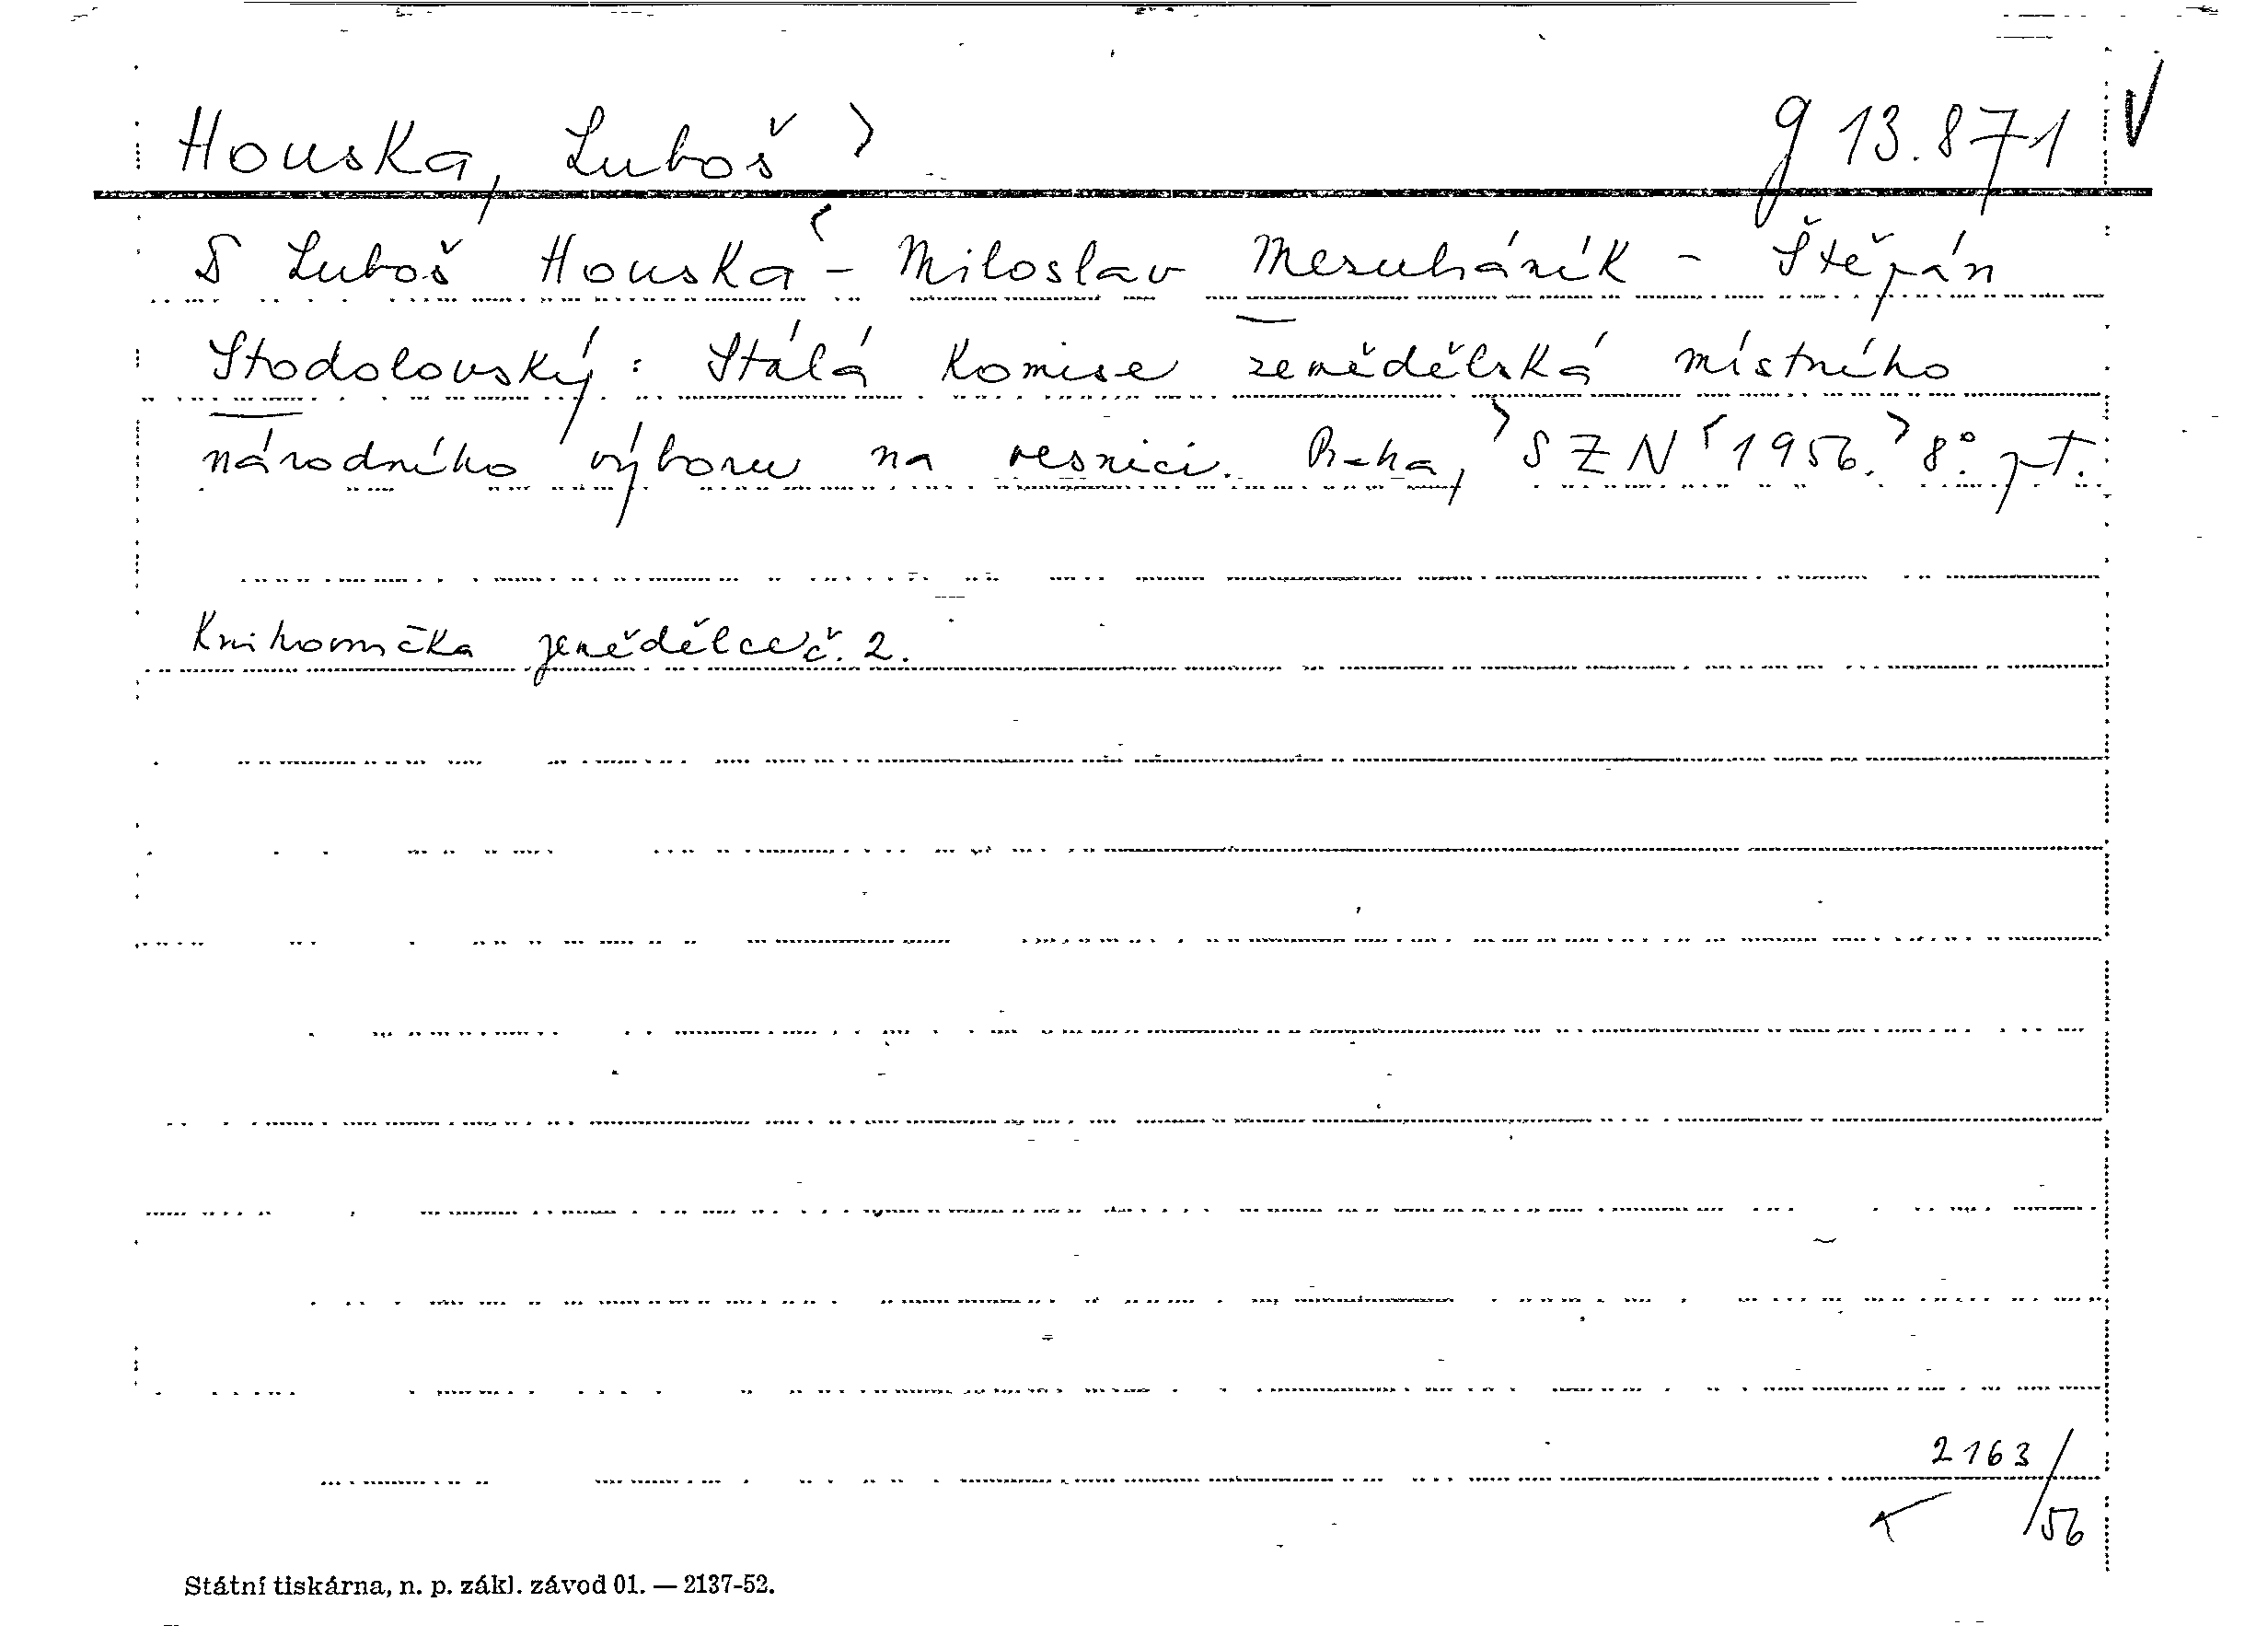 Houska, Luboš g 13.871 V
S Luboš Houska - Miloslav Mezuláník - Štěpán
Stodolovský: Stálá komise zemědělská místního
národního výboru na vesnici. Praha, SZN 1956. 8°.
Knihovnička zemědělce č. 2.
2163/56
Státní tiskárna, n. p. zákl. závod 01. — 2137-52.